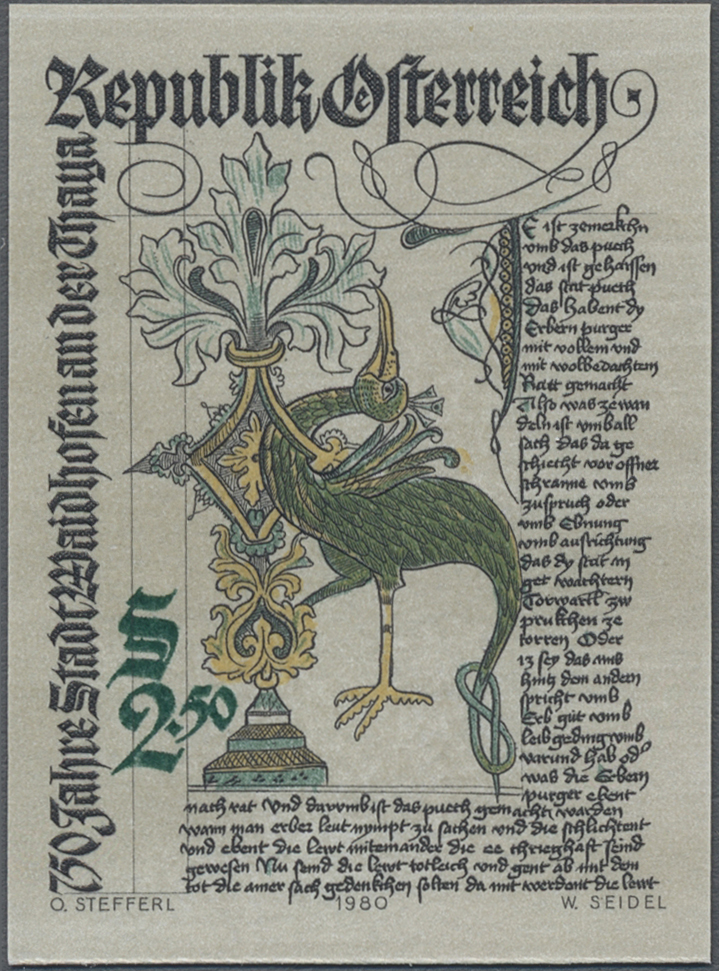 Republik Österreich
750 Jahre Stadt Waidhofen an der Thaya
S
2.50
E ist zemerkhn
vmb das puech
vnd ist gehaissen
das stat puech
das habent dy
Erbern purger
mit vollem vnd
mit wolbedachtem
Ratt gemacht
Also was zewan
deln ist vmb all
sach das da ge
schiecht vor offner
schranne vmb
zuspruch oder
vmb Ebnung
vmb ausrichtung
das dy stat in
get wachtern
Torwartl zw
prukhen ze
torren Oder
sey das ains
hintz dem andern
spricht vmb
Erb gut vmb
leib geding vmb
varund hab od
was die Erbern
purger ebent
nach rat Vnd darvmb ist das puech gemacht warden
wann man erber leut nympt zu sachen vnd die schlichtent
vnd ebent die lewt miteinander die ee chrieghaft seind
gewesen Nu send die lewt totleich vnd gent ab mit dem
tot die ainer sach gedenkhen solten da mit werdent die lewt
O. STEFFERL
1980
W. SEIDEL